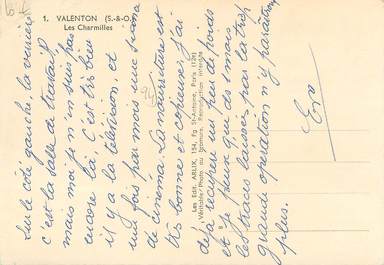 1. VALENTON (S.-&-O.)
Les Charmilles
Sur le côté gauche, la verrière
c'est la salle de travail
mais moi je n'en suis pas
encore là. C'est très bien
il y a la télévision, et
une fois par mois une séance
de cinéma. La nourriture est
très bonne et copieuse, j'ai
déjà récupéré un peu de poids
et je pense que dès 2 mois
les traces laissées par la trop
grande opération n'y paraîtront
plus.
Les Edit. ARLIX, 154, Fg St-Antoine, Paris (12e)
Véritable Photo au bromure. Reproduction interdite
8
(94)